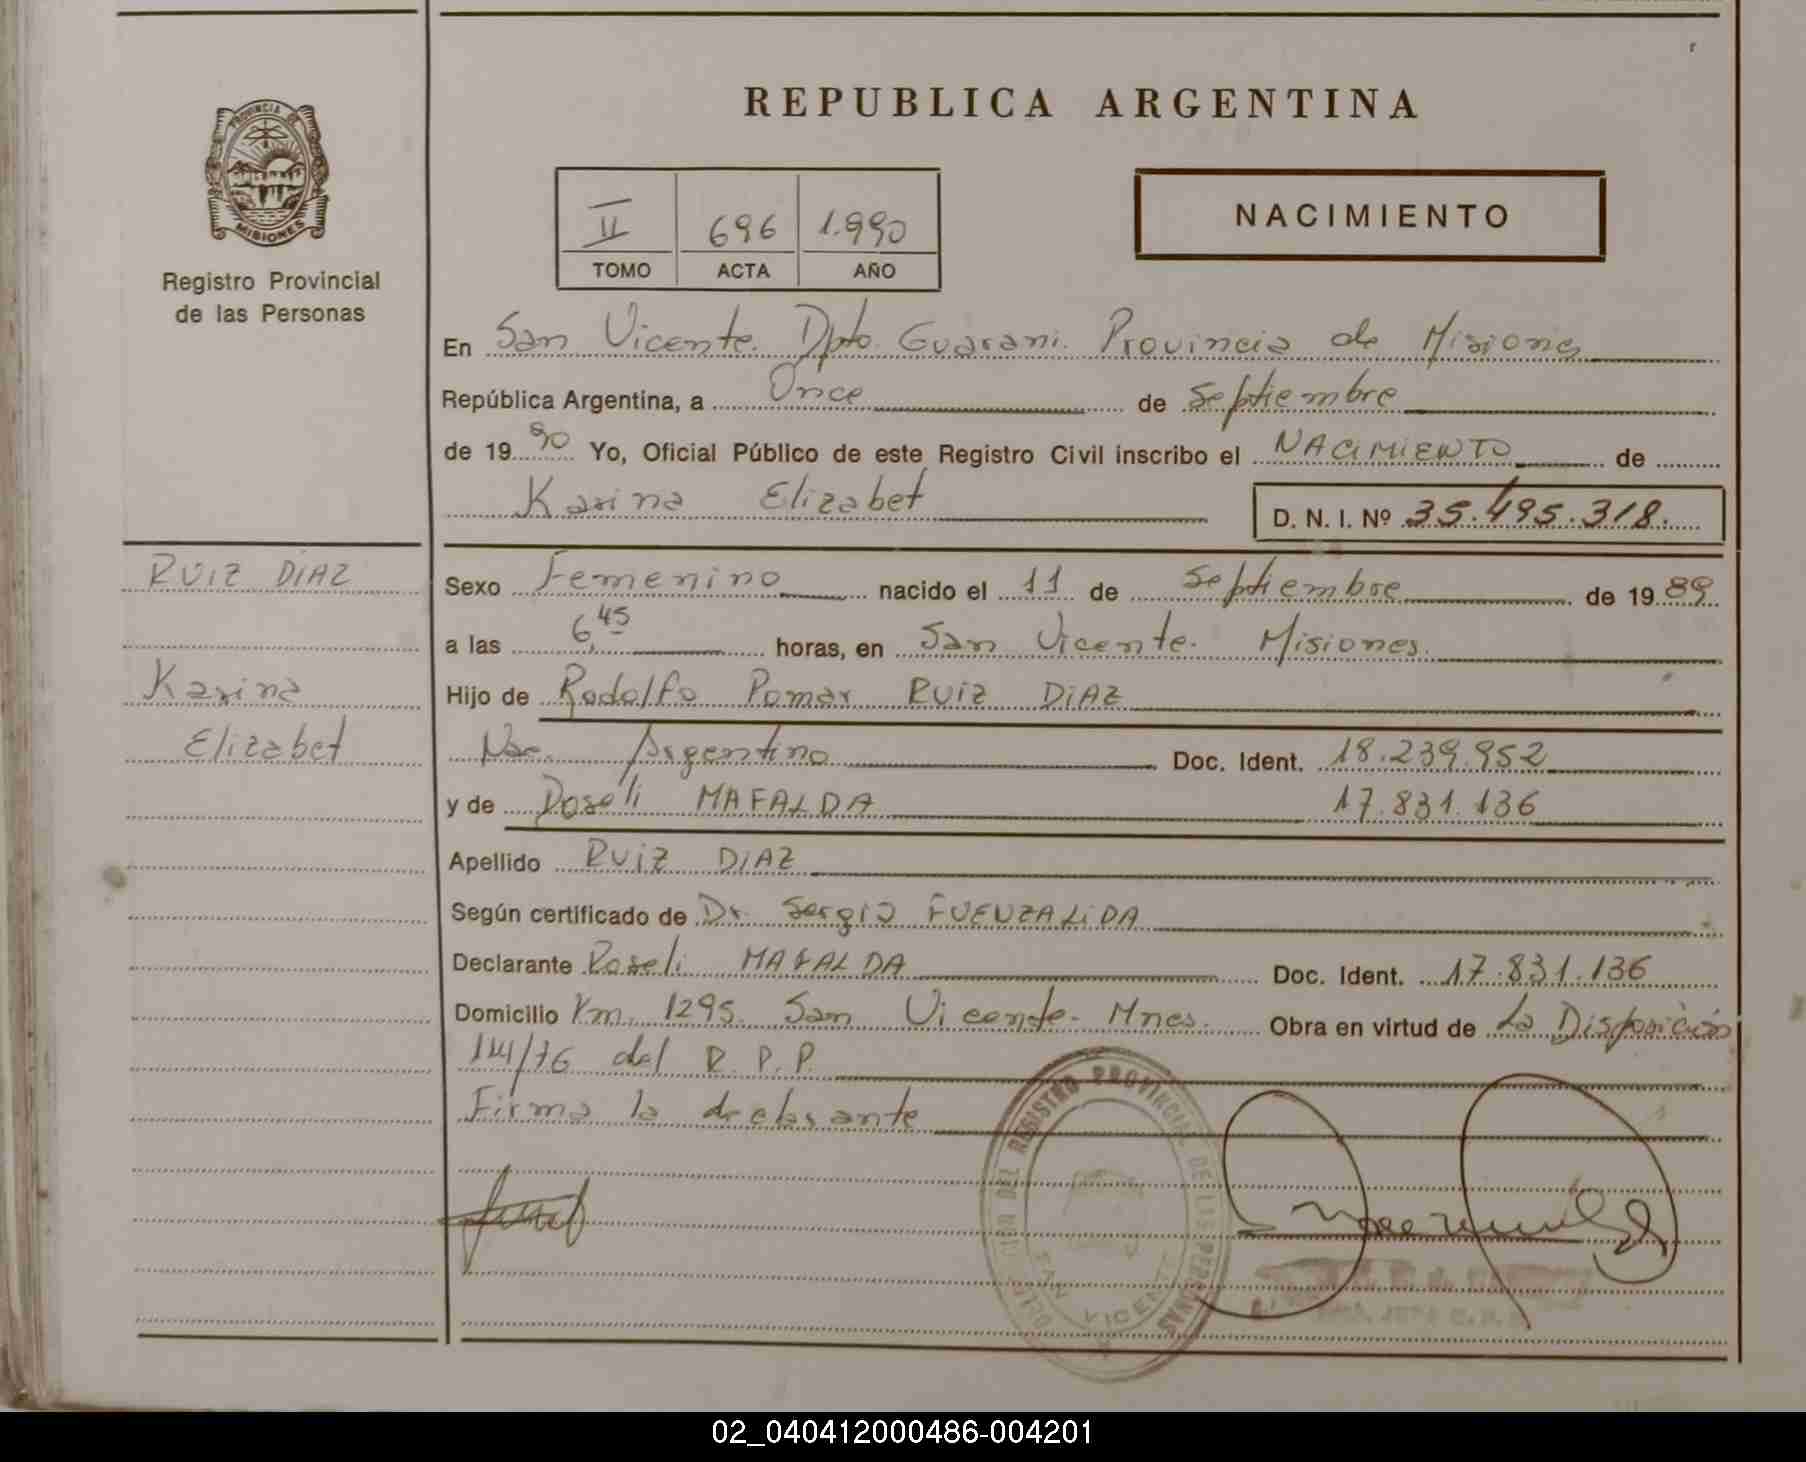 REPUBLICA ARGENTINA
PROVINCIA DE
MISIONES
Registro Provincial
de las Personas
II 696 1.990
TOMO ACTA AÑO
NACIMIENTO
En San Vicente. Dpto. Guarani. Provincia de Misiones
República Argentina, a Once de Septiembre
de 19 90 Yo, Oficial Público de este Registro Civil inscribo el NACIMIENTO de
Karina Elizabet D. N. I. Nº 35.495.318.
RUIZ DIAZ
Karina
Elizabet
Sexo Femenino nacido el 11 de Septiembre de 19 89
a las 6,45 horas, en San Vicente. Misiones.
Hijo de Rodolfo Pomar RUIZ DIAZ
Nac. Argentino Doc. Ident. 18.239.952
y de Roseli MAFALDA 17.831.136
Apellido RUIZ DIAZ
Según certificado de Dr. Sergio FUENZALIDA
Declarante Roseli MAFALDA Doc. Ident. 17.831.136
Domicilio Km. 1295. San Vicente. Mnes. Obra en virtud de La Disposición
114/76 del R.P.P.
Firma la declarante
DELEGACION DEL REGISTRO PROVINCIAL DE LAS PERSONAS
SAN VICENTE
02_040412000486-004201